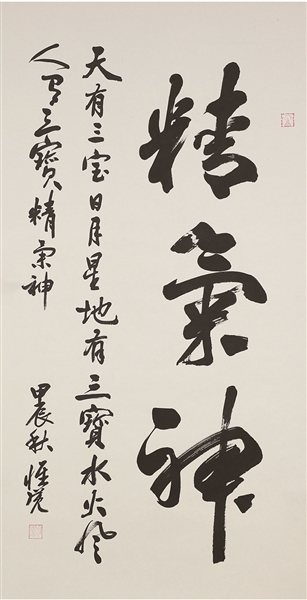 精氣神
天有三宝日月星地有三寶水火风
人有三寶精氣神
甲辰秋 惟覺